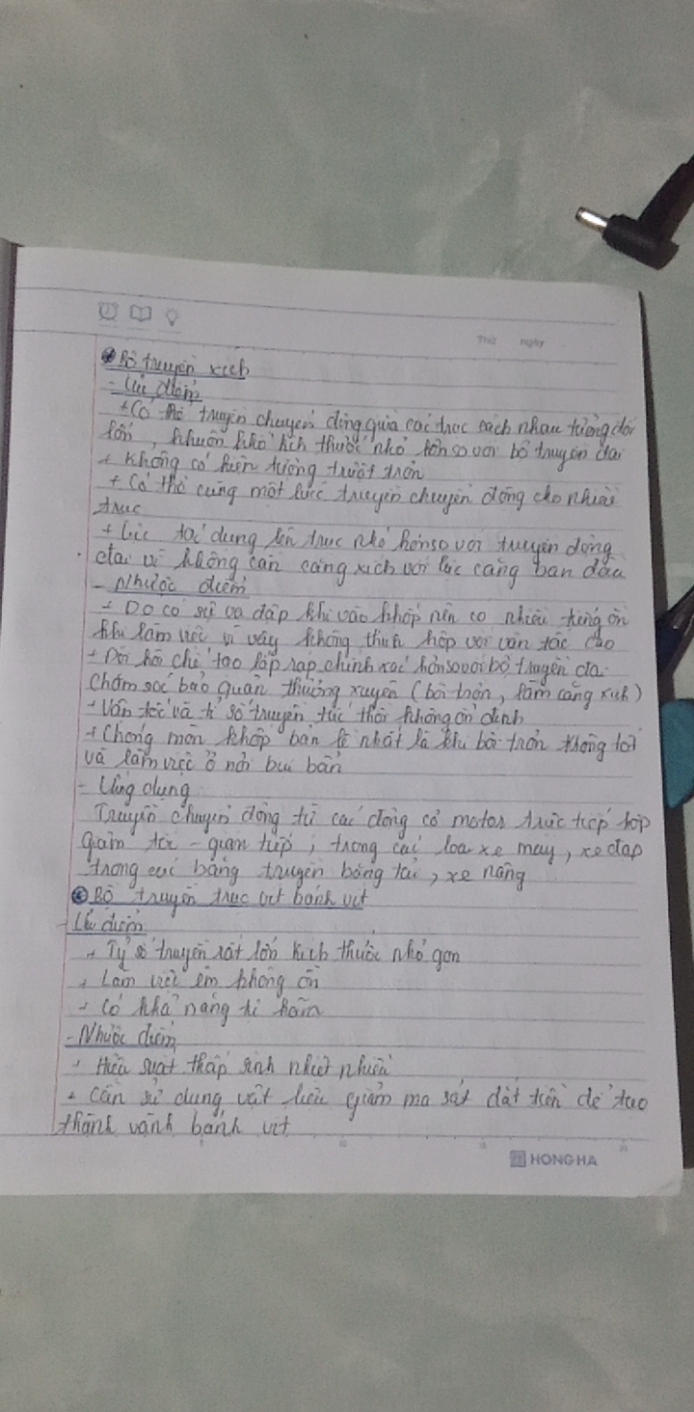 Thứ ngày
Bộ truyền xích
- Ưu điểm
+ Có thể truyền chuyển động giữa các trục cách nhau tương đối
lớn, khuôn khổ kích thước nhỏ hơn so với bộ truyền đai
+ Không có hiện tượng trượt trơn
+ Có thể cùng một lúc truyền chuyển động cho nhiều
trục
+ Lực tác dụng lên trục nhỏ hơn so với truyền động
đai vì không cần căng xích với lực căng ban đầu
- Nhược điểm
+ Do có sự va đập khi vào khớp nên có nhiều tiếng ồn
khi làm việc vì vậy không thích hợp với vận tốc cao
+ Đòi hỏi chế tạo lắp ráp chính xác hơn so với bộ truyền đai
Chăm sóc bảo quản thường xuyên (bôi trơn, làm căng xích)
+ Vận tốc và tỉ số truyền tức thời không ổn định
+ Chóng mòn khớp bản lề nhất là khi bôi trơn không tốt
và làm việc ở nơi bụi bẩn
- Ứng dụng
Truyền chuyển động từ các động cơ motor trực tiếp hộp
giảm tốc - gián tiếp, trong các loại xe máy, xe đạp
trong các băng truyền băng tải, xe nâng
Bộ truyền trục vít bánh vít
- Ưu điểm
+ Tỷ số truyền rất lớn kích thước nhỏ gọn
+ Làm việc êm không ồn
+ Có khả năng tự hãm
- Nhược điểm
+ Hiệu suất thấp sinh nhiệt nhiều
+ Cần sử dụng vật liệu giảm ma sát đắt tiền để tạo
thành vành bánh vít
HONG HA